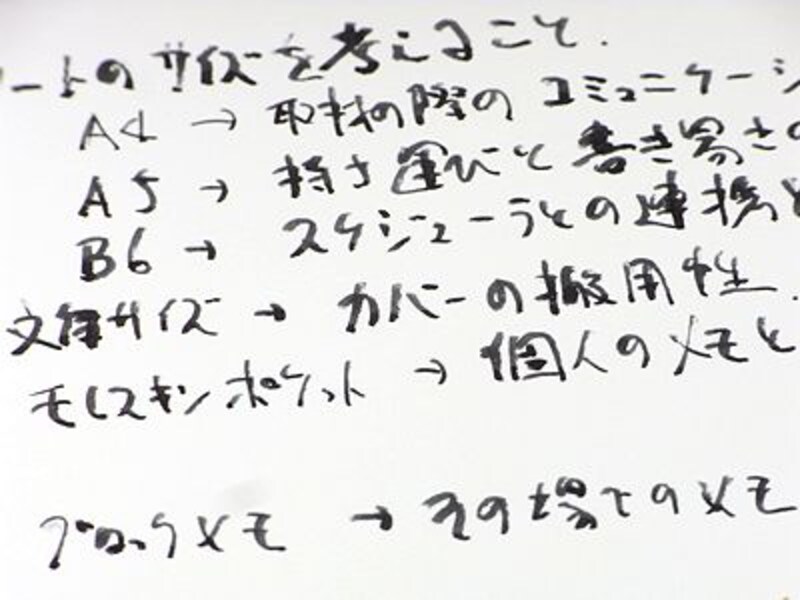 ートのサイズを考えること.
A4 → 取材の際のコミュニケーシ
A5 → 持ち運びと書き易さの
B6 → スケジューラとの連携と
文庫サイズ → カバーの搬用性.
モレスキンポケット → 個人のメモと
ブロックメモ → その場でのメモ